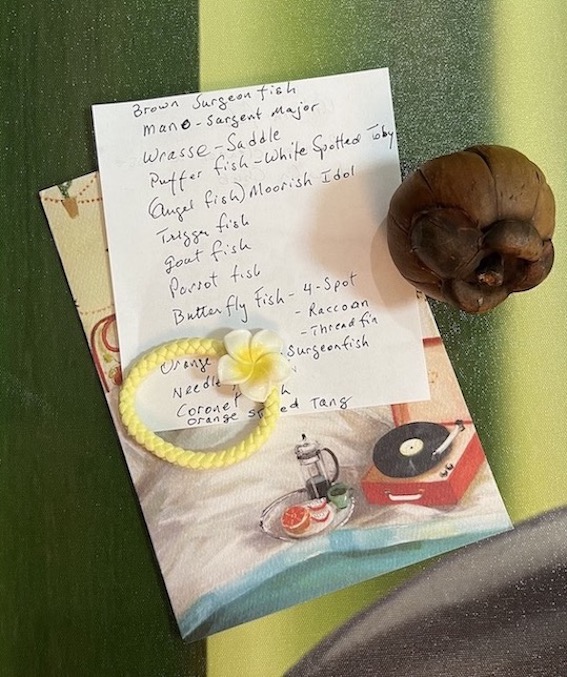 Brown Surgeon fish
mano - Sargent Major
Wrasse - Saddle
Puffer fish - White Spotted Toby
(Angel fish) Moorish Idol
Trigger fish
Goat fish
Parrot fish
Butterfly Fish - 4-Spot
- Raccoon
- Threadfin
Orange Surgeonfish
Needle
Coronet
Orange Tang